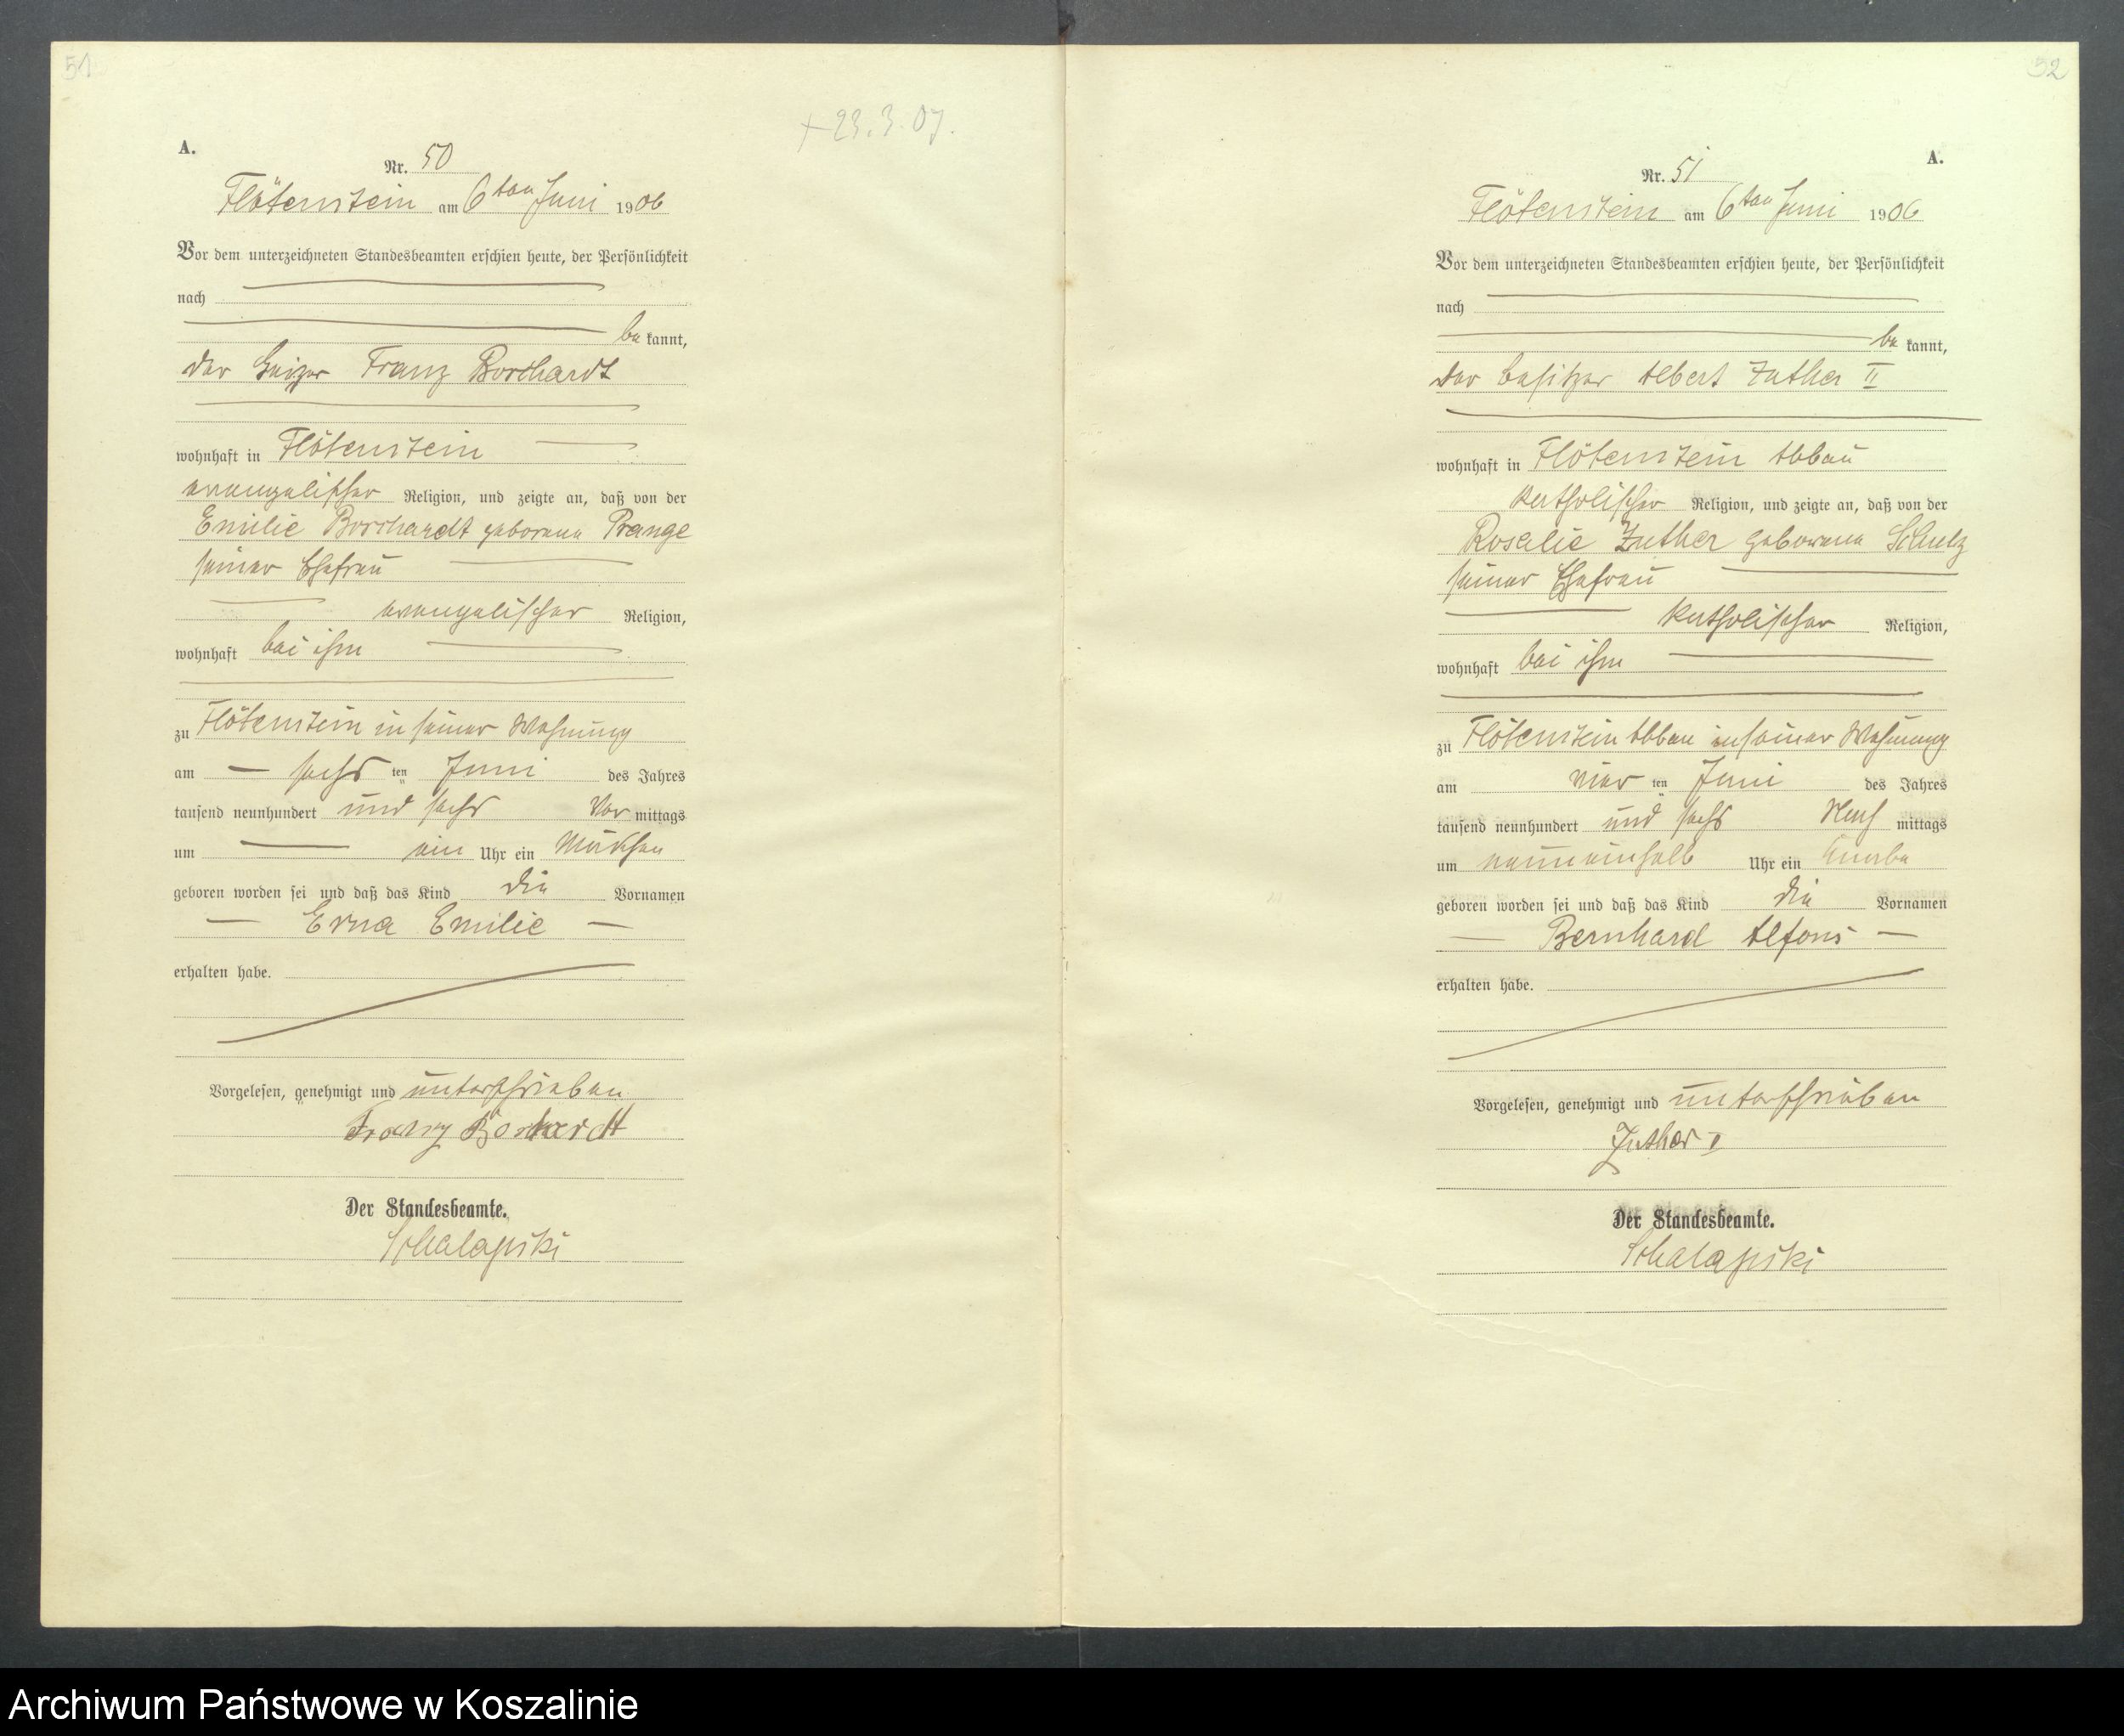 51
+ 23.3.07.
A.
Nr. 50
Flötenstein am 6ten Juni 1906
Vor dem unterzeichneten Standesbeamten erschien heute, der Persönlichkeit
nach
be kannt,
der Heizer Franz Borchardt
wohnhaft in Flötenstein
evangelischer Religion, und zeigte an, daß von der
Emilie Borchardt geborene Prange
seiner Ehefrau
evangelischer Religion,
wohnhaft bei ihm
zu Flötenstein in seiner Wohnung
am sechs ten Juni des Jahres
tausend neunhundert und sechs Vor mittags
um ein Uhr ein Mädchen
geboren worden sei und daß das Kind die Vornamen
Erna Emilie
erhalten habe.
Vorgelesen, genehmigt und unterschrieben
Franz Borchardt
Der Standesbeamte.
Schalapski
52
A.
Nr. 51
Flötenstein am 6ten Juni 1906
Vor dem unterzeichneten Standesbeamten erschien heute, der Persönlichkeit
nach
be kannt,
der Besitzer Albert Zuther II
wohnhaft in Flötenstein Abbau
katholischer Religion, und zeigte an, daß von der
Rosalie Zuther geborene Schulz
seiner Ehefrau
katholischer Religion,
wohnhaft bei ihm
zu Flötenstein Abbau in seiner Wohnung
am vier ten Juni des Jahres
tausend neunhundert und sechs Nach mittags
um neuneinhalb Uhr ein Knabe
geboren worden sei und daß das Kind die Vornamen
Bernhard Alfons
erhalten habe.
Vorgelesen, genehmigt und unterschrieben
Zuther II
Der Standesbeamte.
Schalapski
Archiwum Państwowe w Koszalinie